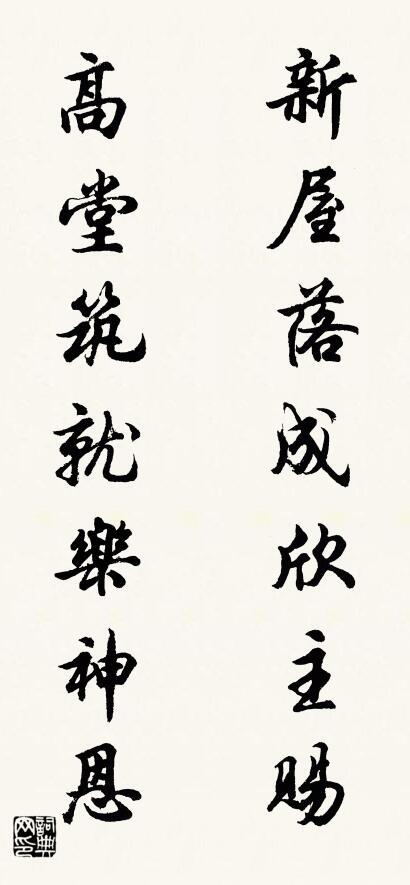 新屋落成欣主賜
高堂筑就樂神恩
詞典网印